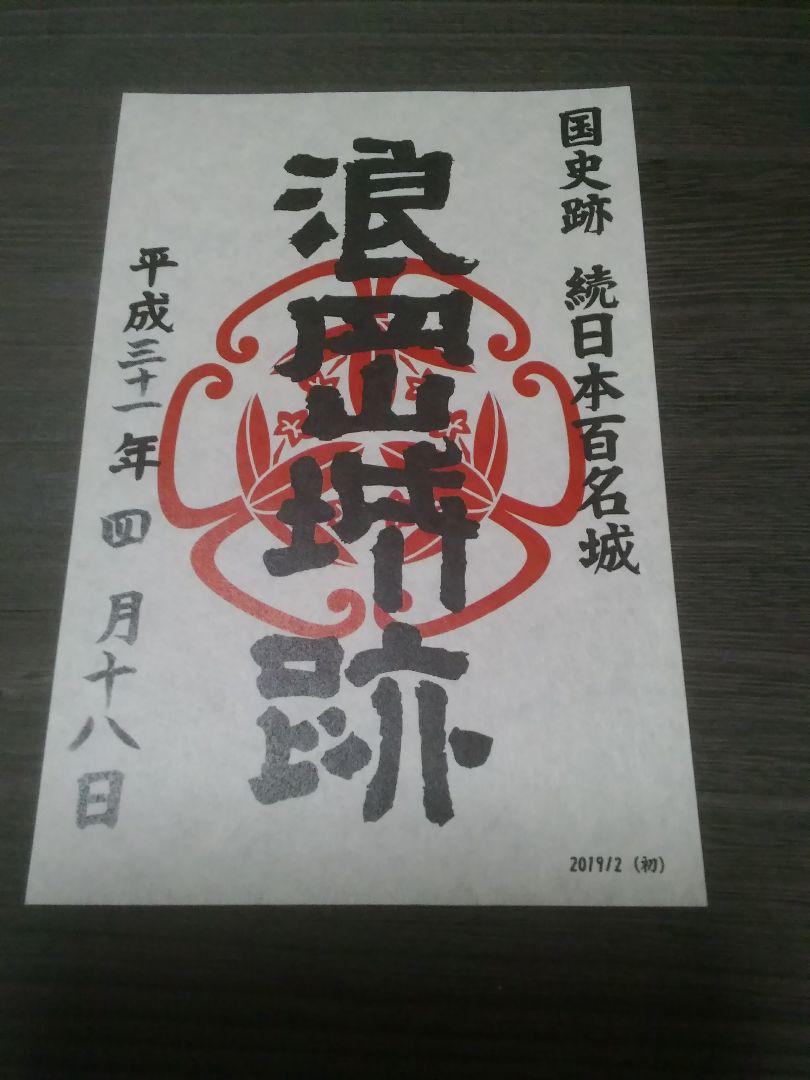 国史跡 続日本百名城
浪岡城跡
平成三十一年四月十八日
2019/2 (初)